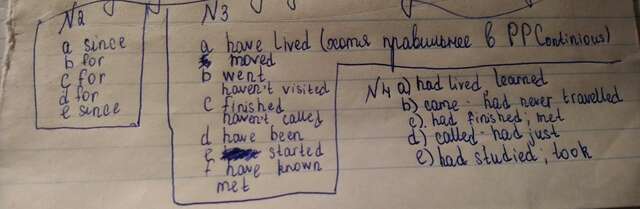 N2
a since
b for
c for
d for
e since
N3
a have lived (хотя правильнее в PPContinious)
moved
b went
haven't visited
c finished
haven't called
d have been
e started
f have known
met
N4 a) had lived, learned
b) came - had never travelled
c) had finished, met
d) called - had just
e) had studied, took